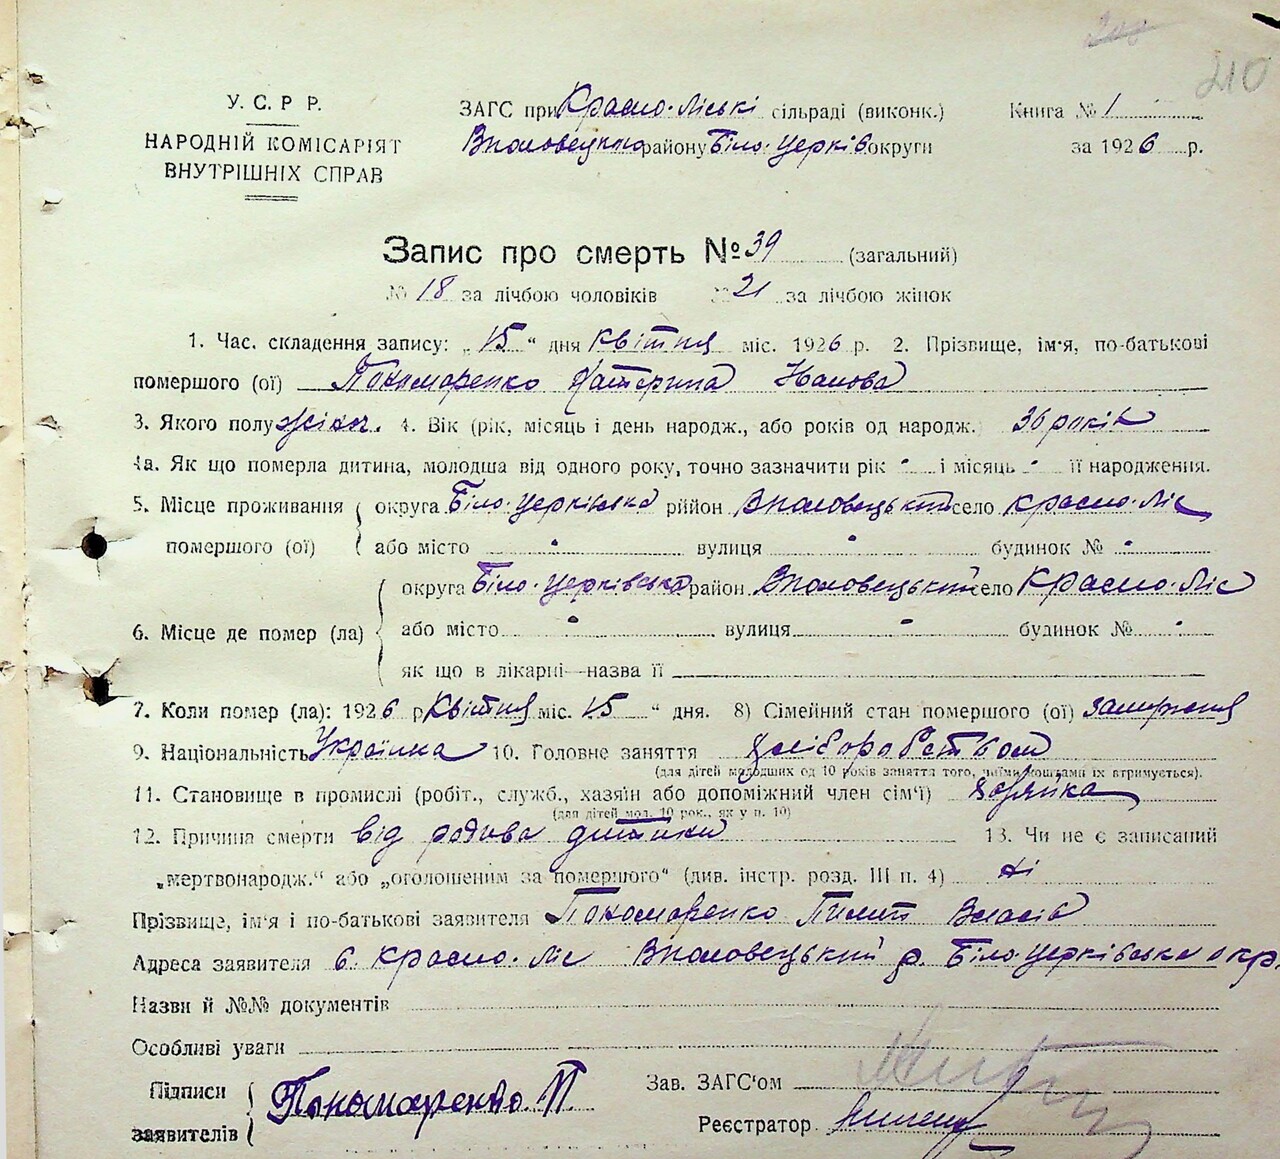 210
У. С. Р. Р.
НАРОДНІЙ КОМІСАРІЯТ
ВНУТРІШНІХ СПРАВ
ЗАГС при Красно-Ліські сільраді (виконк.)
району Біло-Церків округи
Книга № 1
за 1926 р.
Запис про смерть № 39 (загальний)
№ 18 за лічбою чоловіків № 21 за лічбою жінок
1. Час складення запису: „15“ дня квітня міс. 1926 р. 2. Прізвище, ім'я, по-батькові
помершого (ої) Пономаренко Катерина Іванова
3. Якого полу жіноч. 4. Вік (рік, місяць і день народж., або років од народж.) 36 років
4а. Як що померла дитина, молодша від одного року, точно зазначити рік - і місяць - її народження.
5. Місце проживання помершого (ої)
округа Біло-Церківська рйіон село Красно-Ліс
або місто - вулиця - будинок № -
6. Місце де помер (ла)
округа Біло-Церківська район село Красно-Ліс
або місто - вулиця - будинок № -
як що в лікарні—назва її
7. Коли помер (ла): 1926 р. Квітня міс. 15 “ дня. 8) Сімейний стан помершого (ої) замужня
9. Національність Українка 10. Головне заняття хліборобством
(для дітей молодших од 10 років заняття того, чиїми коштами їх втримується).
11. Становище в промислі (робіт., служб., хазяїн або допоміжний член сім'ї)
(для дітей мол. 10 рок., як у п. 10)
12. Причина смерти від родива дитини 13. Чи не є записаний
„мертвонародж.“ або „оголошеним за помершого“ (див. інстр. розд. III п. 4) Ні
Прізвище, ім'я і по-батькові заявителя Пономаренко Пилип Власів
Адреса заявителя с. Красно-Ліс р. Біло-Церківська окр.
Назви й №№ документів
Особливі уваги
Підписи заявителів Пономаренко П.
Зав. ЗАГС'ом
Реєстратор